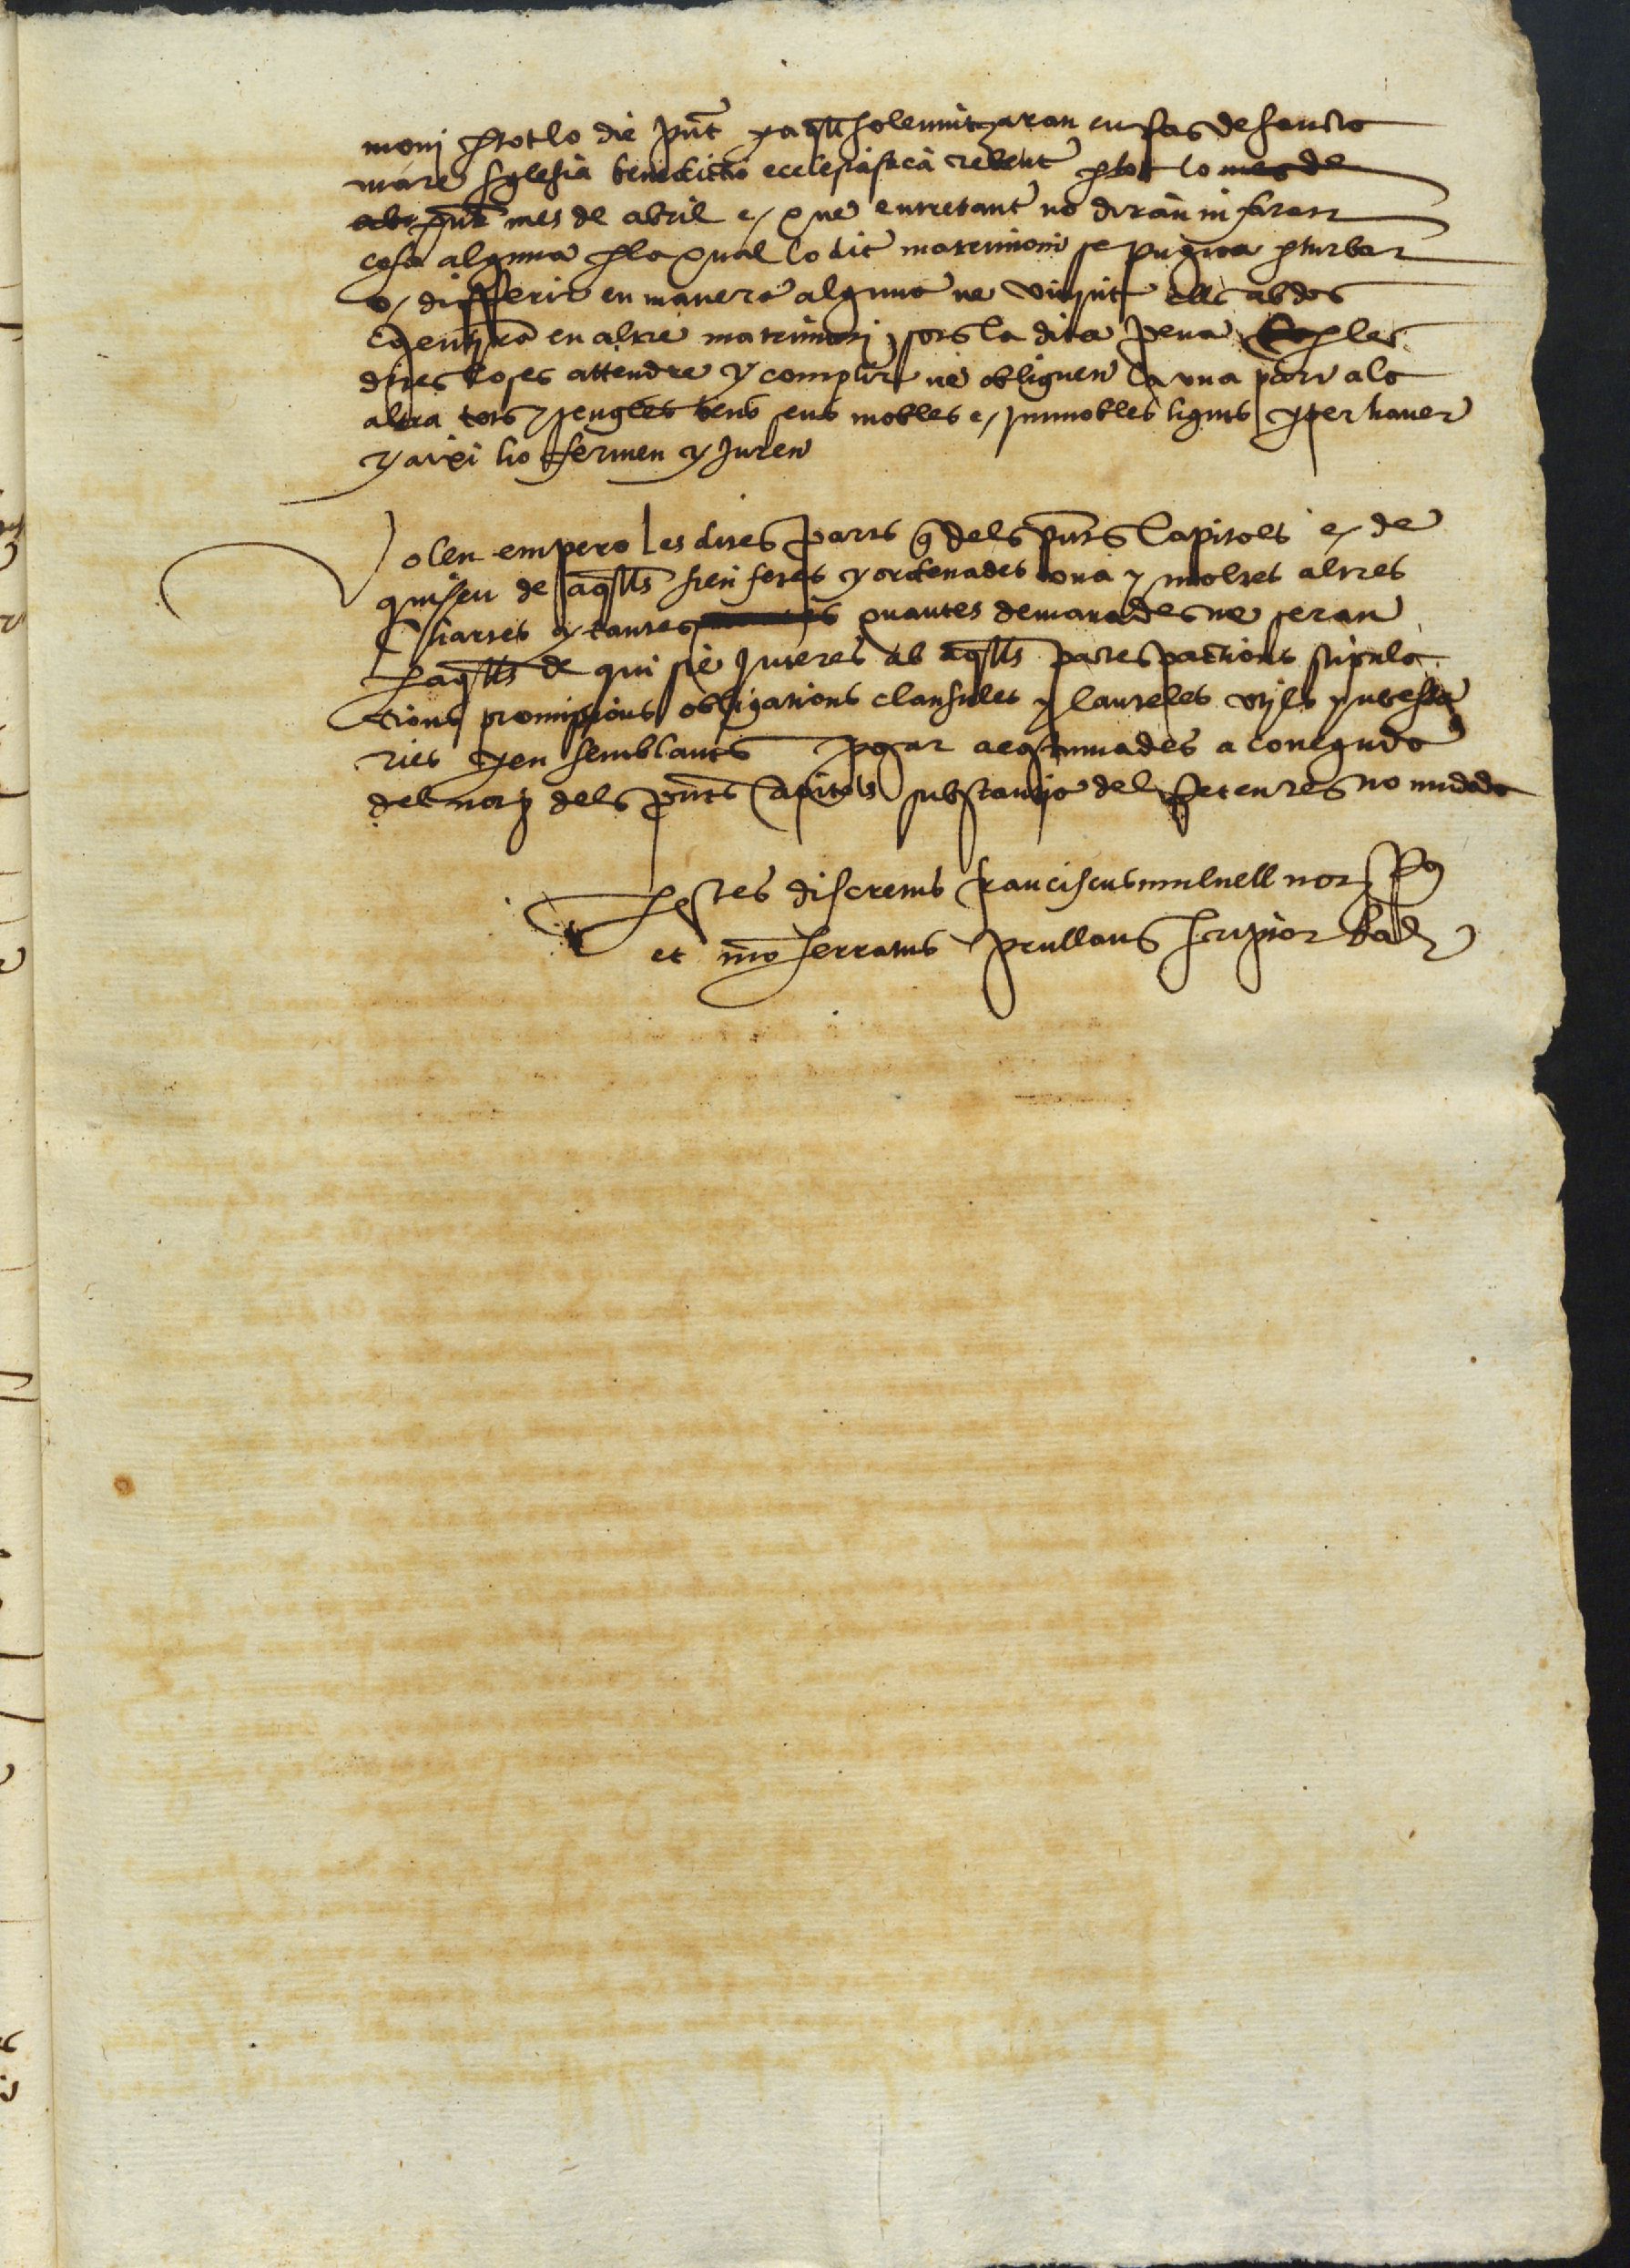 moni p tot lo die pnt y aqll solemnizaran en fas de sancta
mare sglesia benedictio ecclesiastica rebent p tot lo mes de
abr pnt mes de abril e que entretant no diran ni faran
cosa alguna p la qual lo dit matrimoni se pugna pturbar
o differir en manera alguna ne vivint ells abdos
en altre matrimoni sots la dita pena E p les
dites coses attendre y complir ne obliguen la una part a la
altra tots y sengles bens seus mobles e immobles haguts y per haver
y axi ho fermen y juren
Volen empero les dites parts q dels pnts Capitols e de
quiscu de aqlls sien fetes y ordenades una y moltes altres
cartes y tantes quantes demanades ne seran
p aqlls de qui sie interes ab aqlls pactes pactions stipula
cions promissions obligations clausules y cauteles utils y necessa
ries y en semblants posar acostumades a coneguda
del not dels pnts Capitols substantia del fet en res no mudada
Testes discretus franciscus mulnell not
et moferratus prullans scriptor